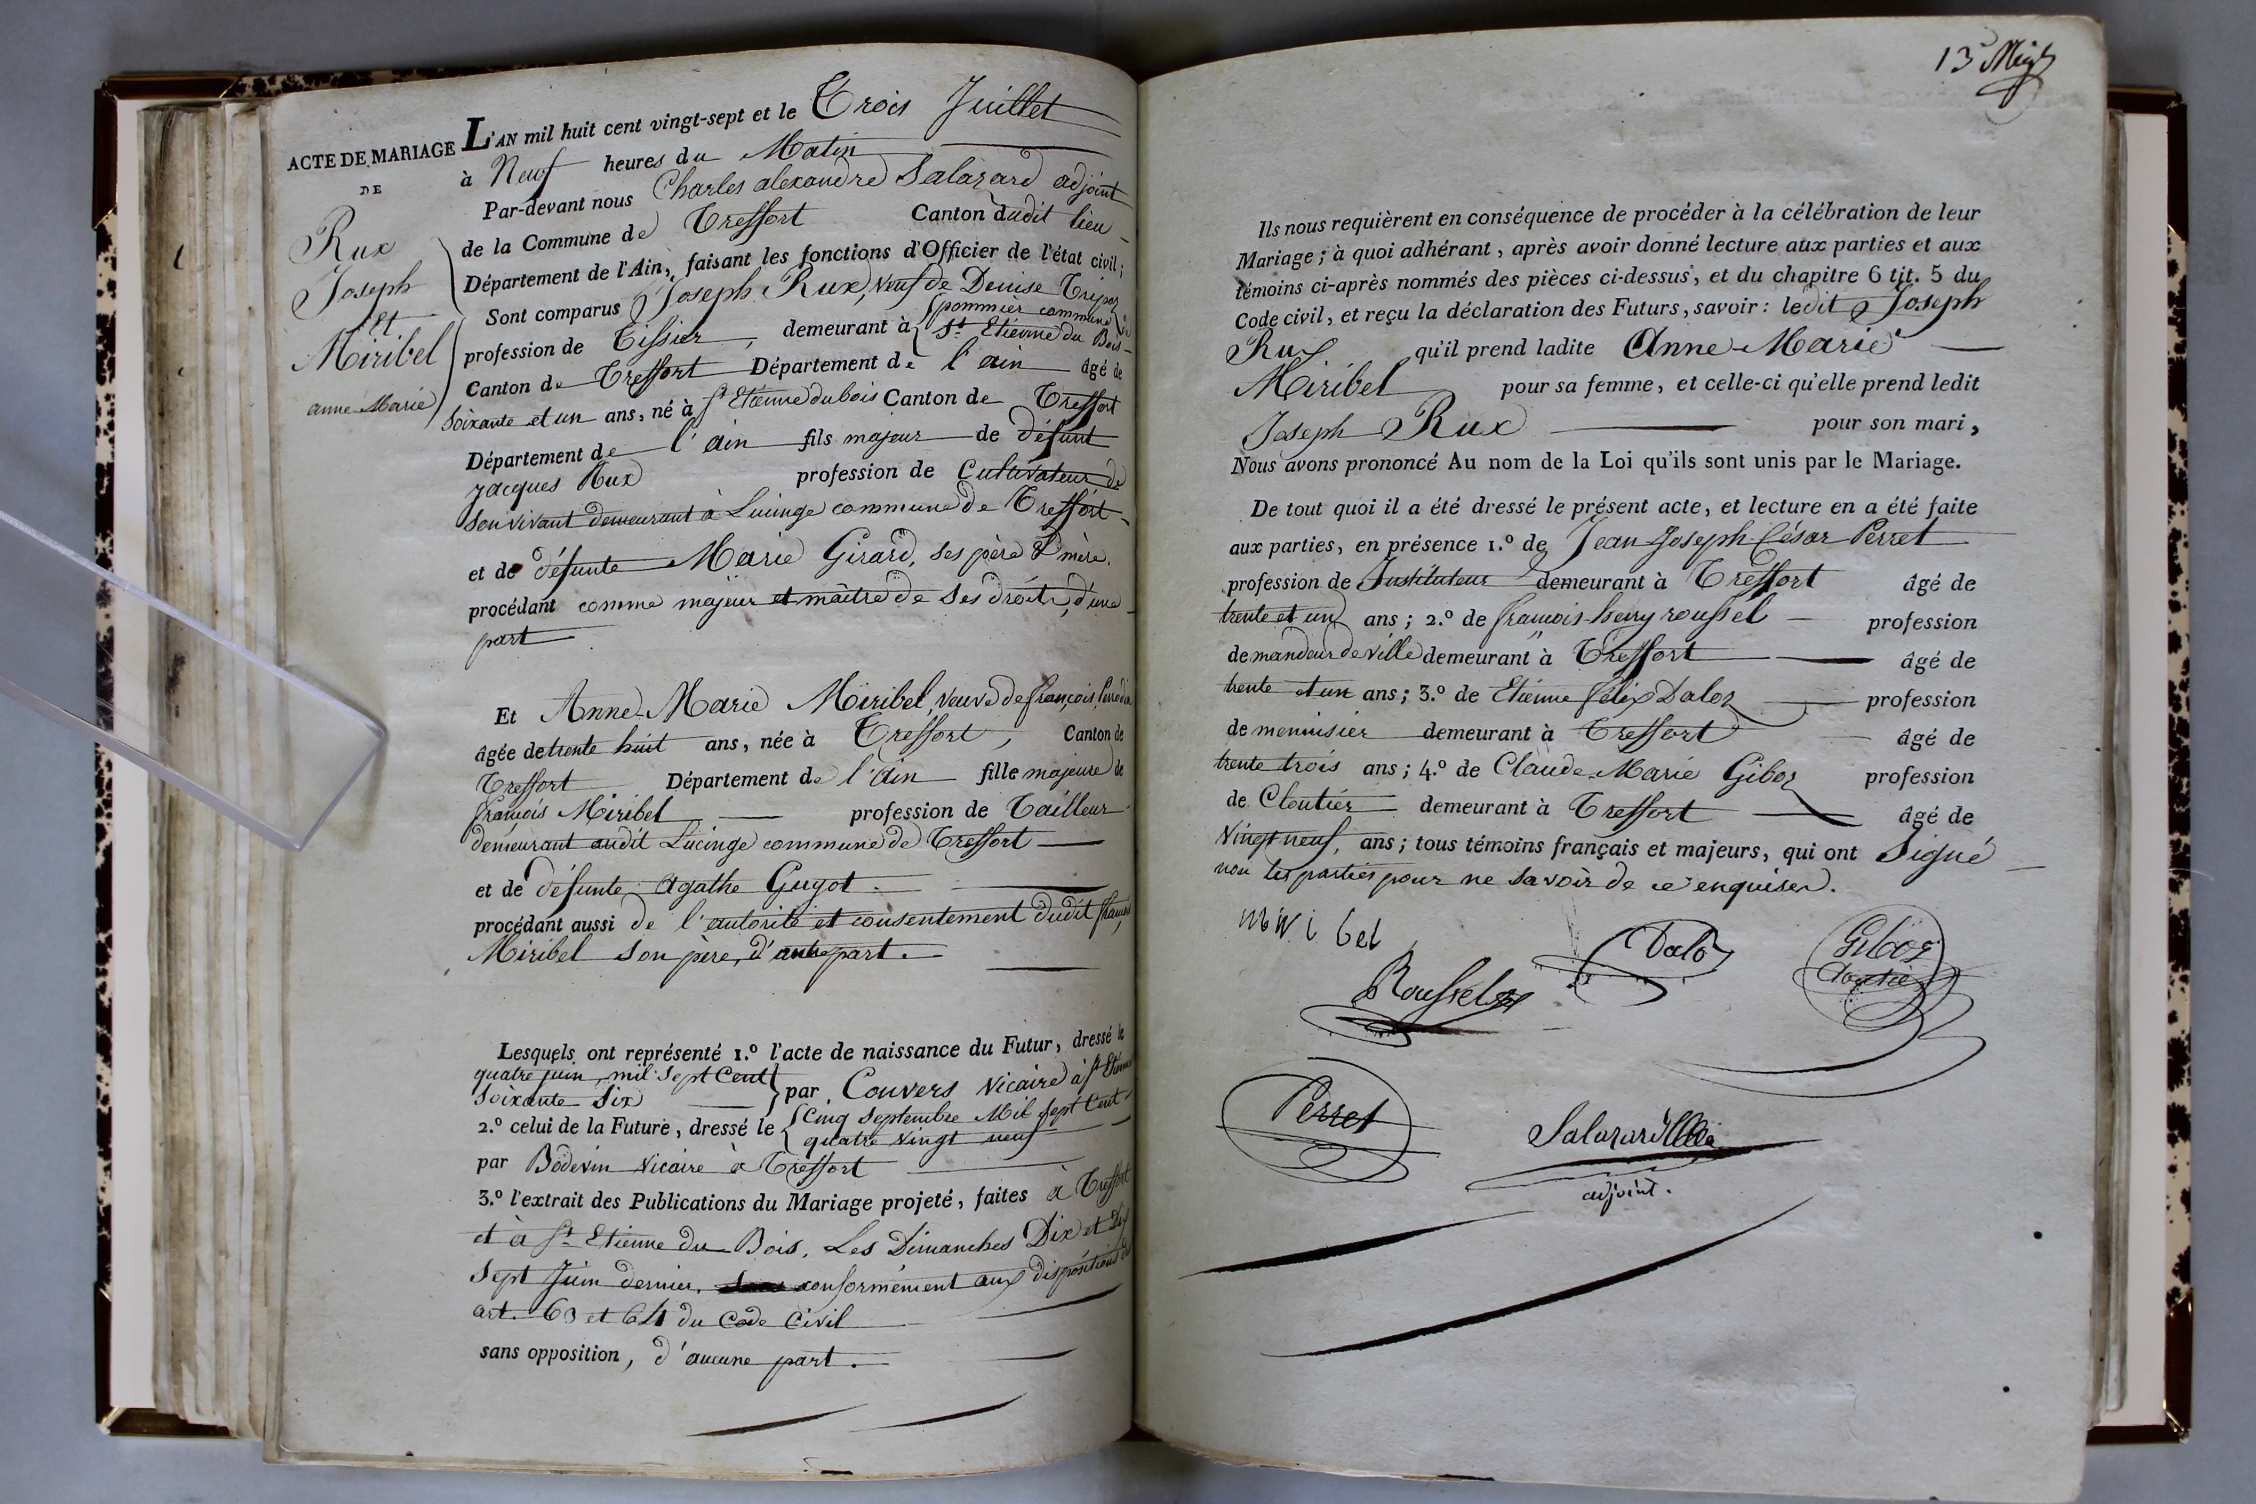 ACTE DE MARIAGE
DE
Rux
Joseph
Et
Miribel
anne Marie
L'AN mil huit cent vingt-sept et le Trois Juillet
à Neuf heures du Matin
Par-devant nous Charles alexandre Salazard adjoint
de la Commune de Treffort Canton dudit lieu
Département de l'Ain, faisant les fonctions d'Officier de l'état civil;
Sont comparus Joseph Rux, veuf de Denise Tripoz
profession de Tissier, demeurant à pommier commune de
St Etienne du Bois
Canton de Treffort Département de l'ain âgé de
soixante et un ans, né à St Etienne du bois Canton de Treffort
Département de l'ain fils majeur de défunt
Jacques Rux profession de Cultivateur de
son vivant demeurant à Lucinge commune de Treffort
et de défunte Marie Girard, ses père & mère.
procédant comme majeur et maître de ses droits, d'une
part
Et Anne-Marie Miribel, veuve de françois
âgée de trente huit ans, née à Treffort, Canton de
Treffort Département de l'ain fille majeure de
françois Miribel profession de Tailleur
demeurant audit Lucinge commune de Treffort
et de défunte agathe Gugot
procédant aussi de l'autorité et consentement dudit françois
Miribel son père, d'autre part.
Lesquels ont représenté 1.º l'acte de naissance du Futur, dressé le
quatre juin, mil sept Cent
soixante Six par Couvers vicaire à St Etienne
2.º celui de la Future, dressé le Cinq Septembre Mil sept Cent
quatre vingt neuf
par Bodevin vicaire à Treffort
3.º l'extrait des Publications du Mariage projeté, faites à Treffort
et à St Etienne du Bois. Les Dimanches Dix et Dix
Sept Juin dernier, conformément aux dispositions des
art. 63 et 64 du Code Civil
sans opposition, d'aucune part.
13
Ils nous requièrent en conséquence de procéder à la célébration de leur
Mariage; à quoi adhérant, après avoir donné lecture aux parties et aux
témoins ci-après nommés des pièces ci-dessus, et du chapitre 6 tit. 5 du
Code civil, et reçu la déclaration des Futurs, savoir: ledit Joseph
Rux qu'il prend ladite Anne-Marie
Miribel pour sa femme, et celle-ci qu'elle prend ledit
Joseph Rux pour son mari,
Nous avons prononcé Au nom de la Loi qu'ils sont unis par le Mariage.
De tout quoi il a été dressé le présent acte, et lecture en a été faite
aux parties, en présence 1.º de Jean Joseph César Perret
profession de Instituteur demeurant à Treffort âgé de
trente et un ans; 2.º de françois-henry roussel profession
de mandeur de ville demeurant à Treffort âgé de
trente et un ans; 3.º de Etienne félix Daloz profession
de menuisier demeurant à Treffort âgé de
trente trois ans; 4.º de Claude-Marie Giboz profession
de Cloutier demeurant à Treffort âgé de
Vingt neuf, ans; tous témoins français et majeurs, qui ont Signé
non les parties pour ne savoir de ce enquises.
miribel
Daloz
Giboz
cloutier
Roussel
Perret
Salazard
adjoint.